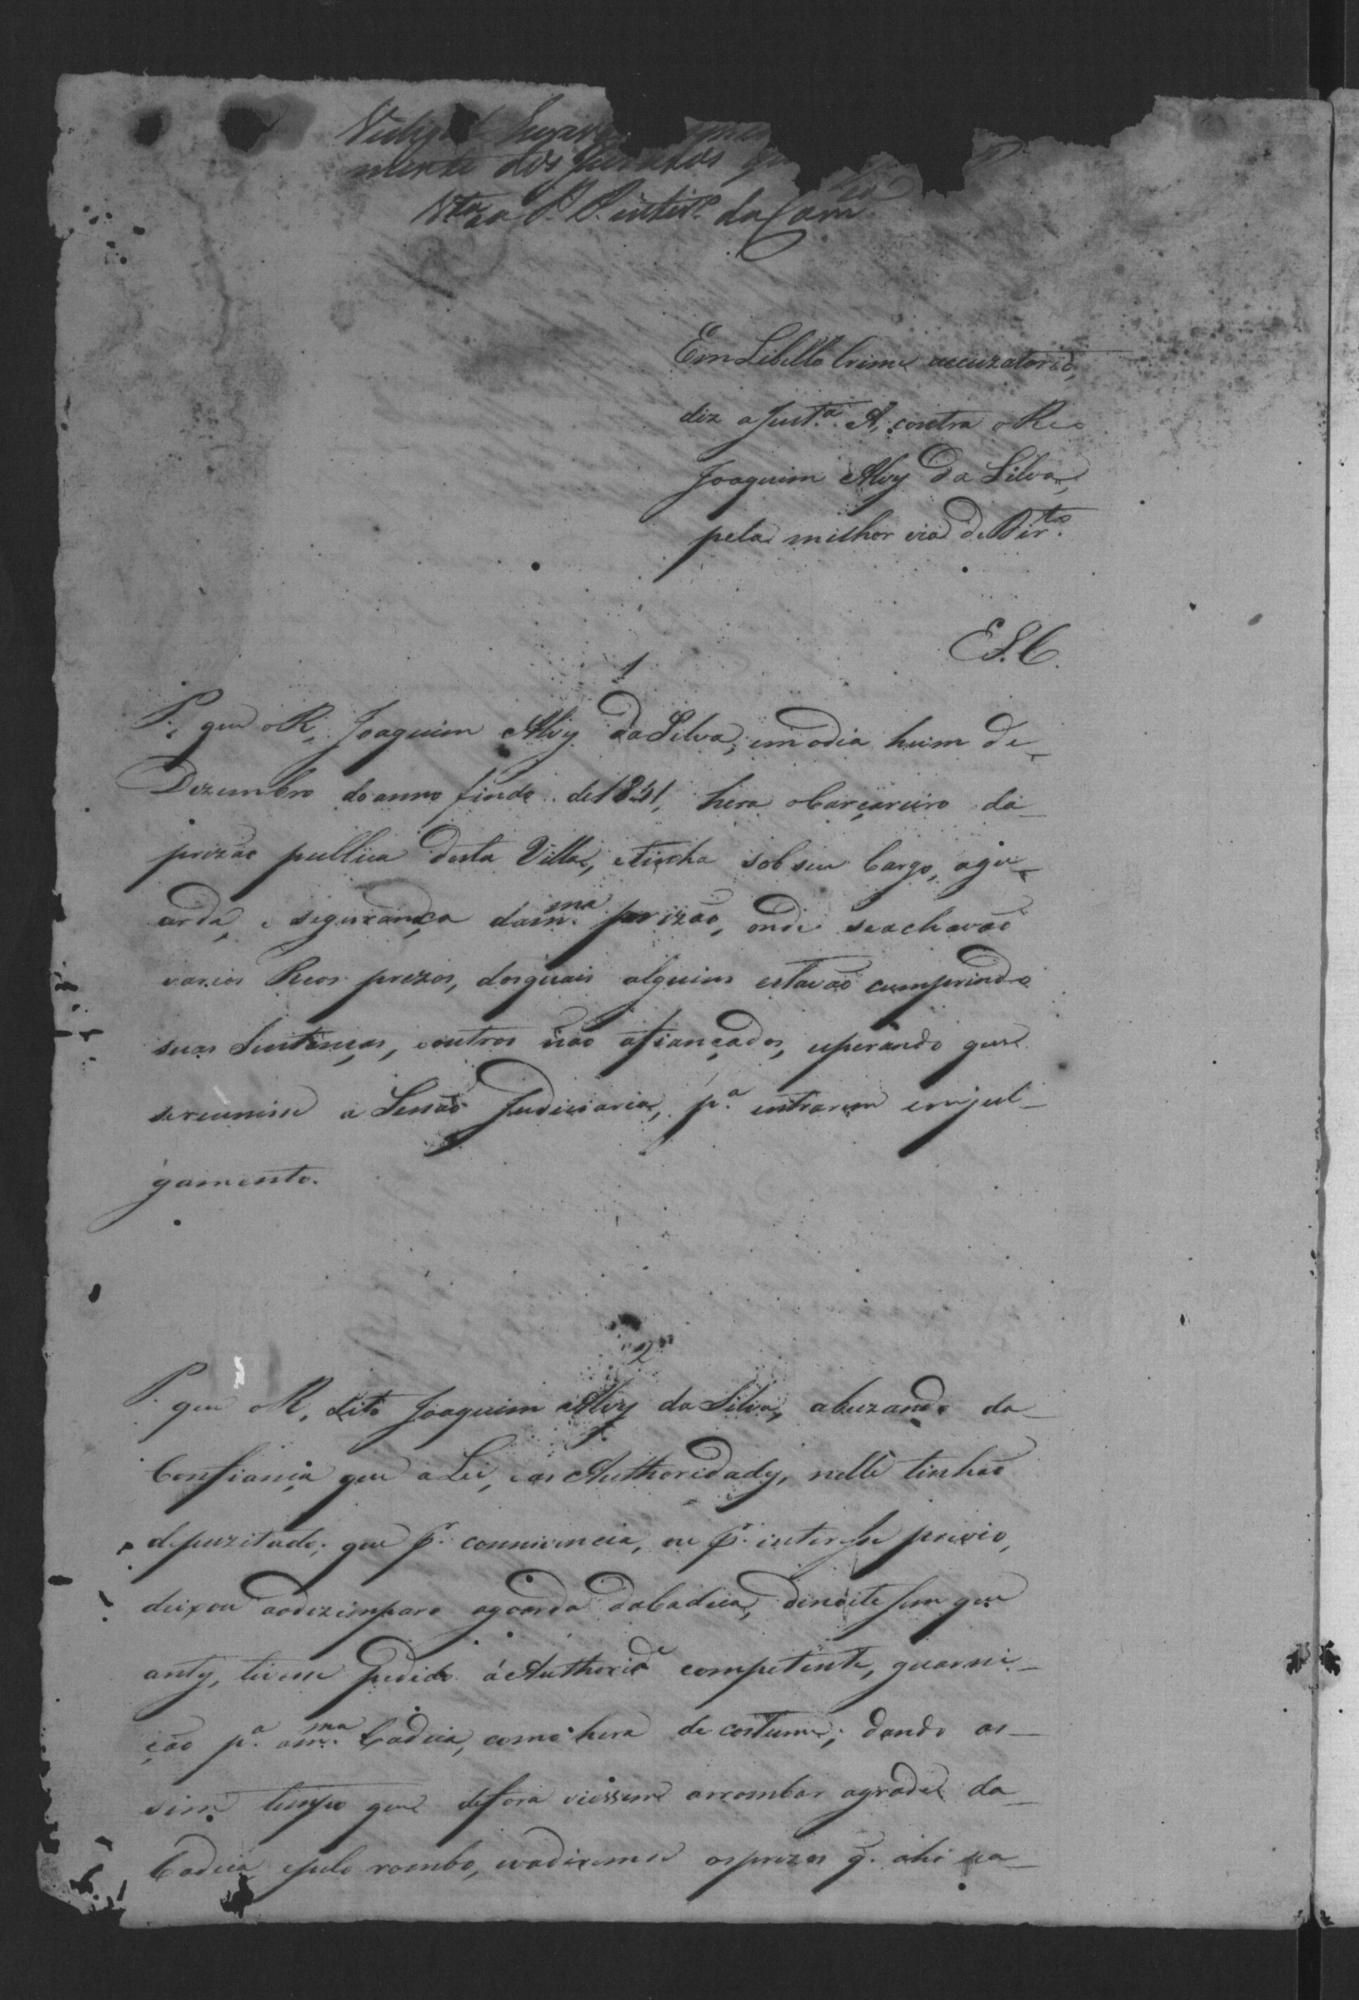 mente dos Jurados
da Cam
Em Libello Crime accuzatorio,
diz a Just.ª A, contra o Reo
Joaquim Alvz da Silva,
pela milhor via de Dir.to
E. S. C.
1
P. que o R., Joaquim Alvz da Silva, em o dia hum de
Dezembro do anno findo de 1841, hera o Carçareiro da
prizão publica desta Villa, e tinha sob seu Cargo, a gu-
arda, e segurança da m.ma prizão, onde se achavão
varios Reos prezos, dos quais alguns estavão cumprindo
suas Sentenças, e outros não afiançados, esperando que
se reunisse a Sessão Judiciaria, p.ª entrarem em jul-
gamento.
2
P. que o R, dito Joaquim Alvz da Silva, abuzando da
Confiança que a Lei, e as Authoridadz, nelle tinhão
depuzitado; que p.r connivencia, ou p.r interesse previo,
deixou ao dezemparo a goarda da Cadeia, de noite sem que
antz, tivesse pedido á Authorid.e competente, guarni-
ção p.ª a m.ma Cadeia, como hera de costume; dando as-
sim tempo que de fora viessem arrombar a grade da
Cadeia e pelo rombo, evadiremse os prezos q. ahi se a-